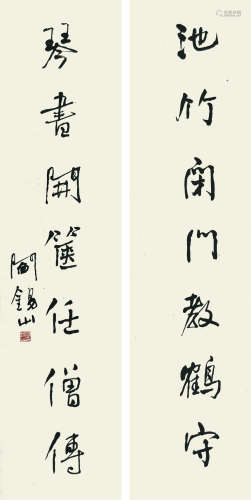 池竹閉門教鶴守
琴書開篋任僧傳
閻錫山